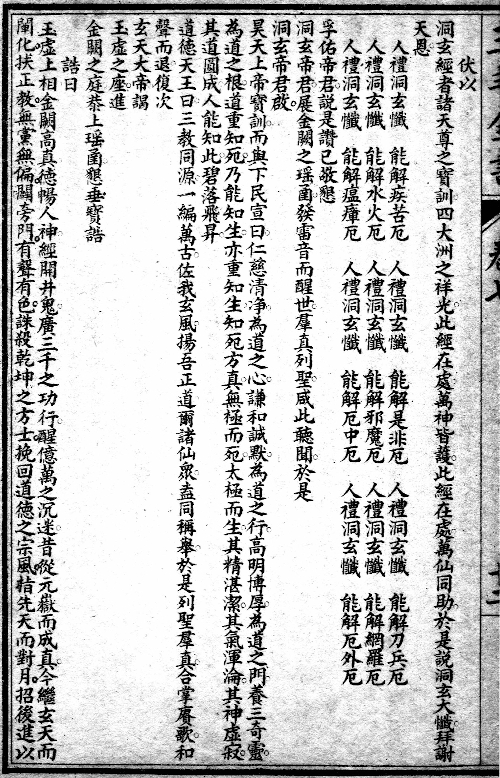 洞玄經者諸天尊之寶訓四大洲之祥光此經在處萬神皆護此經在處萬仙同助於是説洞玄大懺拜謝
天恩
伏以
人禮洞玄懺 能解疾苦厄 人禮洞玄懺 能解是非厄 人禮洞玄懺 能解刀兵厄
人禮洞玄懺 能解水火厄 人禮洞玄懺 能解邪魔厄 人禮洞玄懺 能解網羅厄
人禮洞玄懺 能解瘟㾮厄 人禮洞玄懺 能解厄中厄 人禮洞玄懺 能解厄外厄
孚佑帝君説是讚已敬懇
洞玄帝君展金闕之瑶凾發雷音而醒世羣真列聖咸此聽聞於是
洞玄帝君啟
昊天上帝寶訓而與下民宣曰仁慈清净為道之心謙和誠默為道之行高明博厚為道之門養三奇靈
為道之根道重知死乃能知生亦重知生知死方真無極而死太極而生其精湛潔其氣渾淪其神虛寂
其道圓成人能知此碧落飛昇
道德天王曰三教同源一編萬古佐我玄風揚吾正道爾諸仙眾盍同稱舉於是列聖羣真合掌賡歌和
聲而退復次
玄天大帝謁
玉虛之座進
金闕之庭恭上瑶凾懇垂寶誥
誥曰
玉虛上相金闕高真德暢人神經開井鬼廣三千之功行醒億萬之沉迷昔從元嶽而成真今繼玄天而
闡化扶正教無黨無偏闢旁門有聲有色誅殺乾坤之方士挽回道德之宗風指先天而對月招後進以